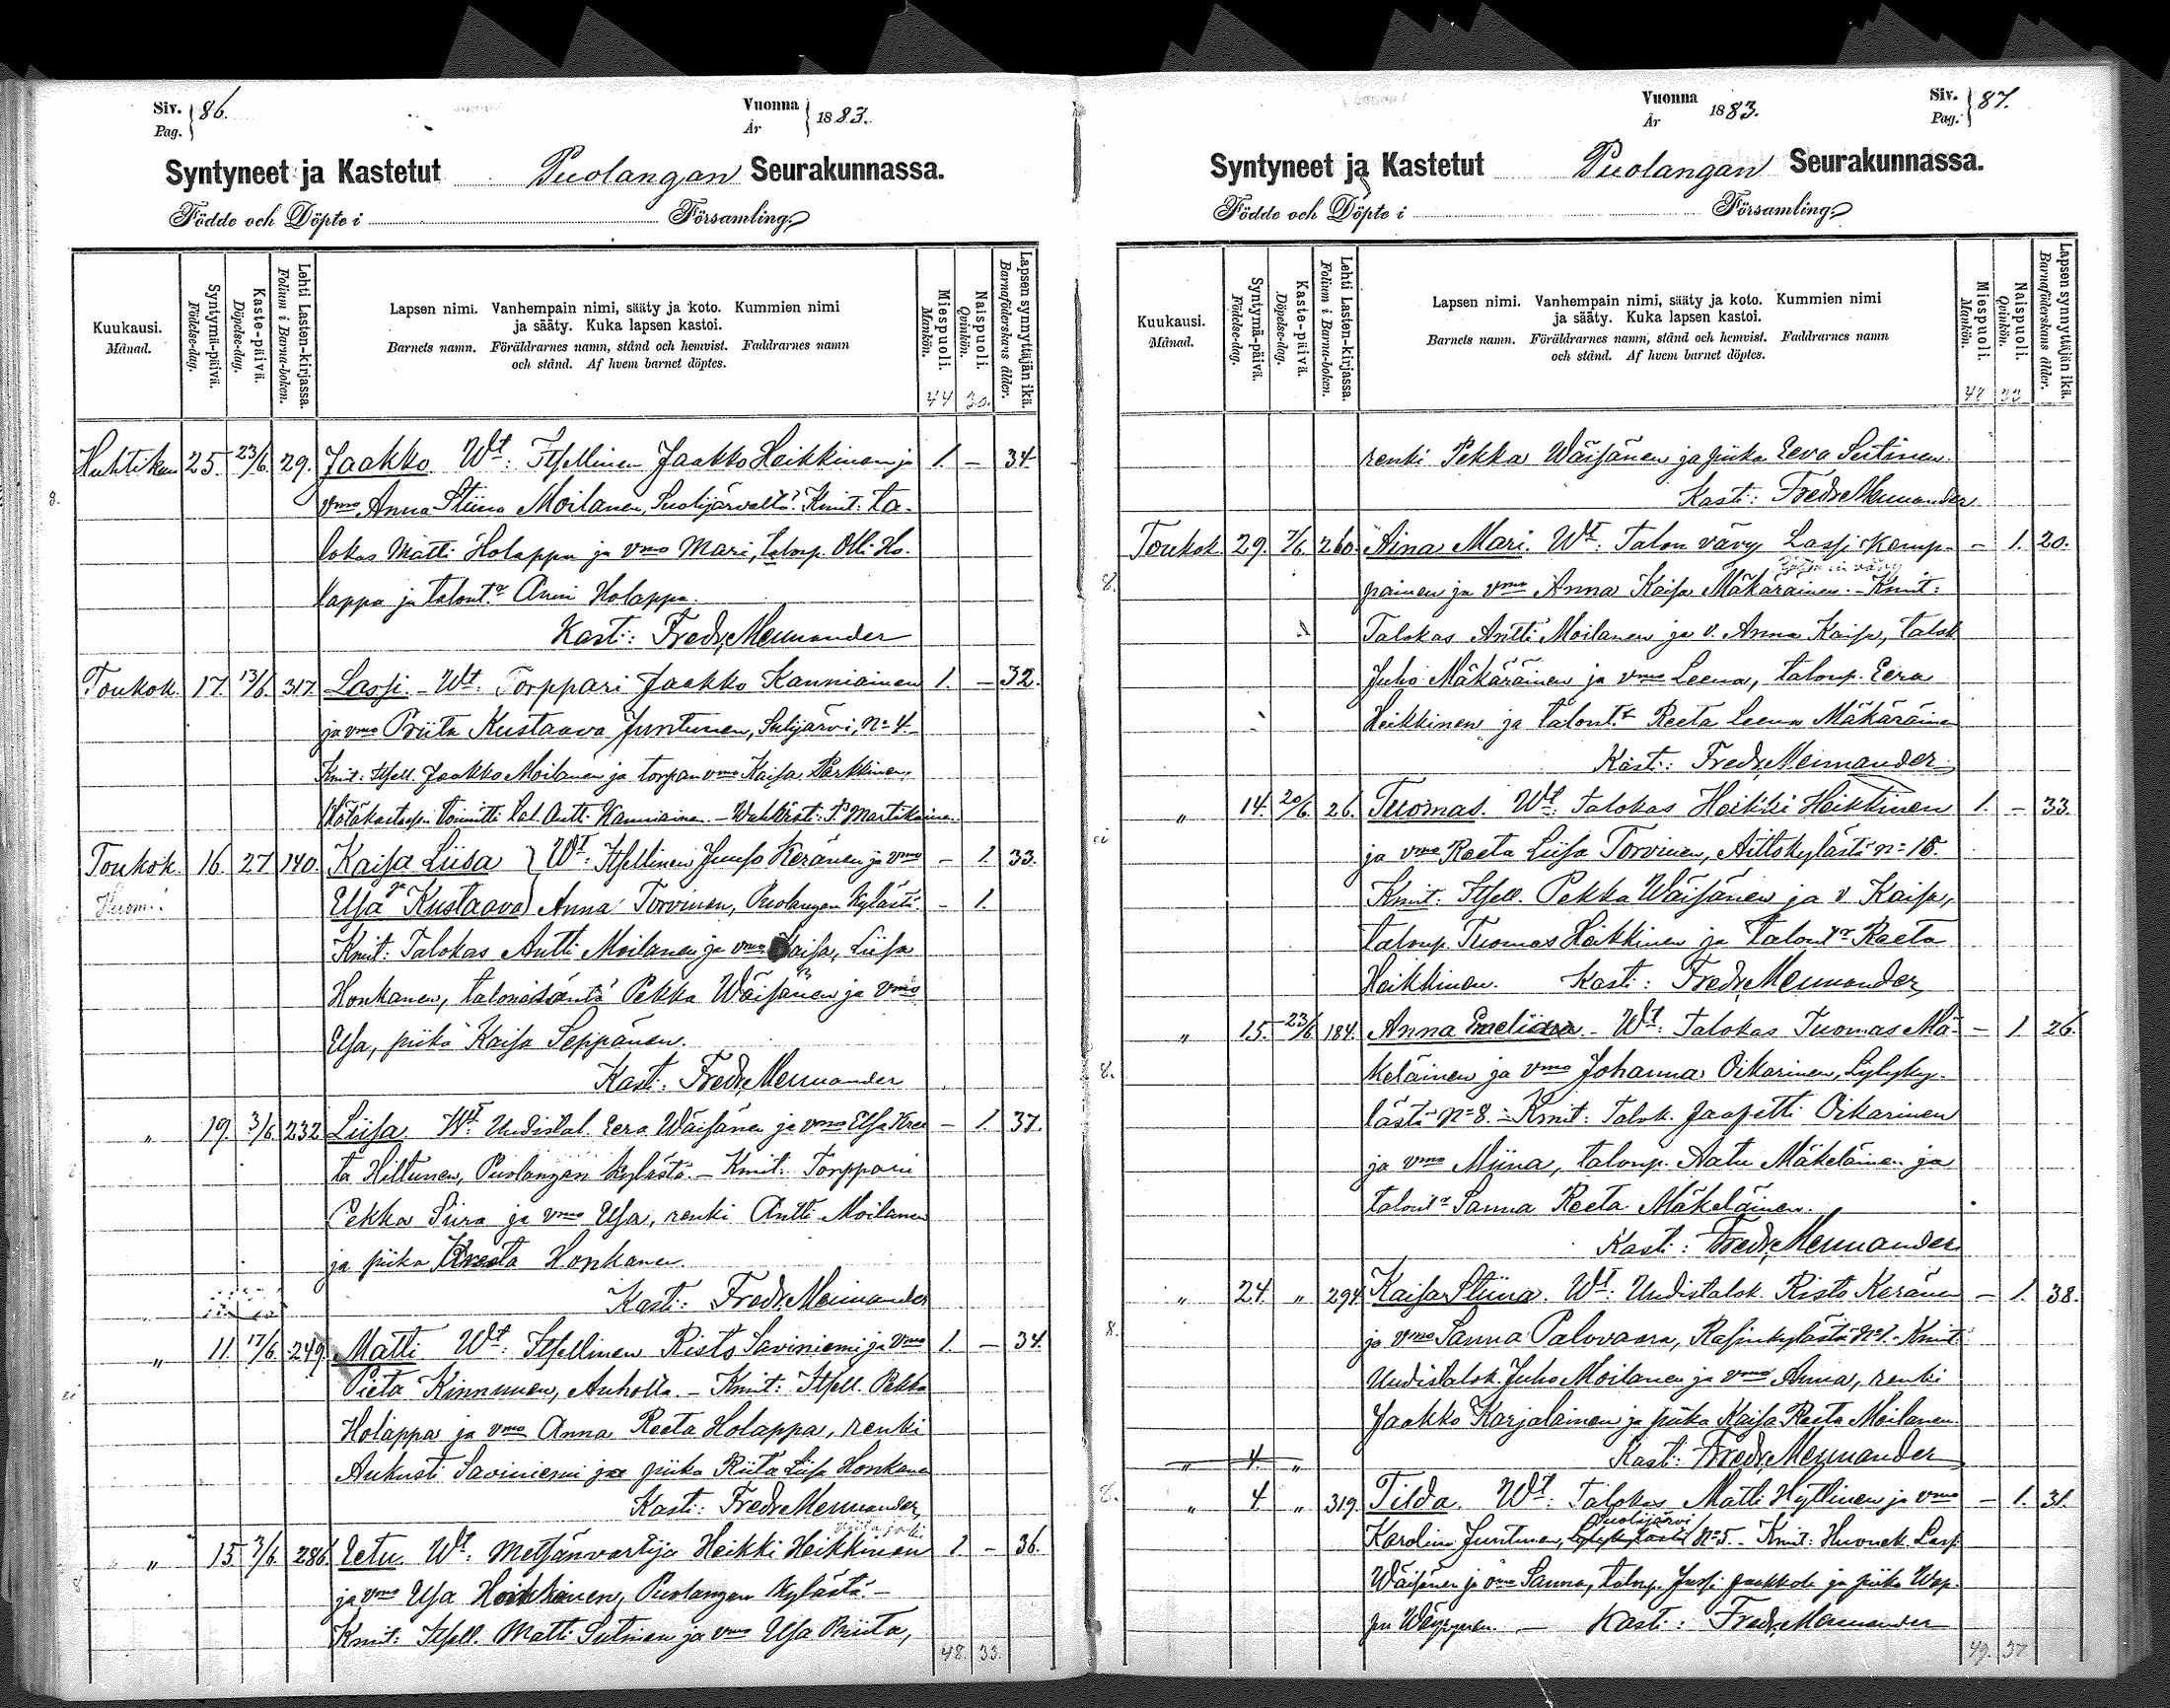 Siv. 86.
Pag.
Vuonna 1883.
År
Syntyneet ja Kastetut Puolangan Seurakunnassa.
Födde och Döpte i Församling.
Kuukausi.
Månad.
Syntymä-päivä.
Födelse-dag.
Kaste-päivä.
Döpelse-dag.
Lehti Lasten-kirjassa.
Folium i Barna-boken.
Lapsen nimi. Vanhempain nimi, sääty ja koto. Kummien nimi
ja sääty. Kuka lapsen kastoi.
Barnets namn. Föräldrarnes namn, stånd och hemvist. Faddrarnes namn
och stånd. Af hvem barnet döptes.
Miespuoli.
Mankön.
Naispuoli.
Qvinkön.
Lapsen synnyttäjän ikä.
Barnaföderskans ålder.
44 30.
Huhtikuu 25. 23/6 29. Jaakko. Wt: Itsellinen Jaakko Heikkinen ja 1. – 34.
8.
vmo Anna Stiina Moilanen, Suolijärveltä. Kmit: ta-
lokas Matti Holappa ja vmo Mari, talonp. Olli Ho-
lappa ja talontr Anni Holappa.
Kasti: Fredr. Mennander
Toukok. 17. 13/6. 317. Lassi. – Wt: Torppari Jaakko Kanniainen 1. – 32.
ja vmo Priita Kustaava Juntunen, Suljärvi, No 4.
Kmit: Itsell. Jaakko Moilanen ja torpan vmo Kaisa Parkkinen.
Hätäkasteen toimitti tal. Antti Kanniainen. – Wahvisti: P. Martikainen.
Toukok. 16. 27 140. Kaisa Liisa } Wt: Itsellinen Juuso Keränen ja vmo – 1. 33.
Huom:
ja
Elsa Kustaava } Anna Torvinen, Puolangan kylästä. – 1.
Kmit: Talokas Antti Moilanen ja vmo Kaisa, Liisa
Honkanen, talonisäntä Pekka Wäisänen ja vmo
Elsa, piika Kaisa Seppänen.
Kasti: Fredr. Mennander
„ 19. 3/6 232 Liisa. Wt: Uudistal. Eera Wäisänen ja vmo Elsa Kree- – 1. 37.
ta Hiltunen, Puolangan kylästä. – Kmit: Torppari
Pekka Siira ja vmo Elsa, renki Antti Moilanen
ja piika Kreeta Honkanen.
Kasti: Fredr. Mennander
„ 11. 17/6. 249. Matti. Wt: Itsellinen Risto Saviniemi ja vmo 1. – 34.
ei
Pieta Kinnunen, Auholta. – Kmit: Itsell. Pekka
Holappa ja vmo Anna Reeta Holappa, renki
Aukusti Saviniemi ja piika Riita Liisa Honkanen
Kasti: Fredr. Mennander
„ 15 3/6. 286. Eetu. Wt: Metsänvartija Heikki Heikkinen 1. – 36.
8
ja vmo Elsa Heikkinen, Puolangan kylästä. –
Kmit: Itsell. Matti Sutinen ja vmo Elsa Priita,
48. 33.
Vuonna 1883.
År
Siv. 87.
Pag.
Syntyneet ja Kastetut Puolangan Seurakunnassa.
Födde och Döpte i Församling.
Kuukausi.
Månad.
Syntymä-päivä.
Födelse-dag.
Kaste-päivä.
Döpelse-dag.
Lehti Lasten-kirjassa.
Folium i Barna-boken.
Lapsen nimi. Vanhempain nimi, sääty ja koto. Kummien nimi
ja sääty. Kuka lapsen kastoi.
Barnets namn. Föräldrarnes namn, stånd och hemvist. Faddrarnes namn
och stånd. Af hvem barnet döptes.
Miespuoli.
Mankön.
Naispuoli.
Qvinkön.
Lapsen synnyttäjän ikä.
Barnaföderskans ålder.
48 33
renki Pekka Wäisänen ja piika Eeva Sutinen.
Kasti: Fredr. Mennander
Toukok. 29. 7/6. 260. Aina Mari. Wt: Talon vävy Lassi Kemp- – 1. 20.
8.
painen ja vmo Anna Kaisa Mäkäräinen. – Kmit:
Talokas Antti Moilanen ja v. Anna Kaisa, talok
Juho Mäkäräinen ja vmo Leena, talonp. Eera
Heikkinen ja talontr Reeta Leena Mäkäräinen
Kasti: Fredr. Mennander
„ 14. 20/6. 26. Tuomas. Wt: Talokas Heikki Heikkinen 1. – 33.
ei
ja vmo Reeta Liisa Torvinen, Aittokylästä No 10.
Kmit: Itsell. Pekka Wäisänen ja v Kaisa,
talonp. Tuomas Heikkinen ja talontr Reeta
Heikkinen. Kasti: Fredr. Mennander
„ 15. 23/6 184. Anna Emeliina. – Wt: Talokas Tuomas Mä- – 1. 26.
8.
keläinen ja vmo Johanna Oikarinen, Lylyky-
lästä No 8. – Kmit: Talok. Jaapetti Oikarinen
ja vmo Miina, talonp. Aatu Mäkeläinen ja
talontr Sanna Reeta Mäkeläinen.
Kasti: Fredr. Mennander
„ 24. „ 294. Kaisa Stiina. Wt: Uudistalok. Risto Keränen – 1. 38.
8.
ja vmo Sanna Palovaara, Rasinkylästä No 1. – Kmit:
Uudistalok. Juho Moilanen ja vmo Anna, renki
Jaakko Karjalainen ja piika Kaisa Reeta Moilanen.
„ 4. „ Kasti: Fredr. Mennander
8. „ 4 „ 319. Tilda. Wt: Talokas Matti Hyttinen ja vmo – 1. 31.
Suolijärvi
Karolina Juntunen, Lylykylästä No 5. – Kmit: Huonek. Lassi
Wäisänen ja vmo Sanna, talonp. Jussi Jaakkola ja piika Wap-
pu Wäyrynen. – Kasti: Fredr. Mennander
49. 37